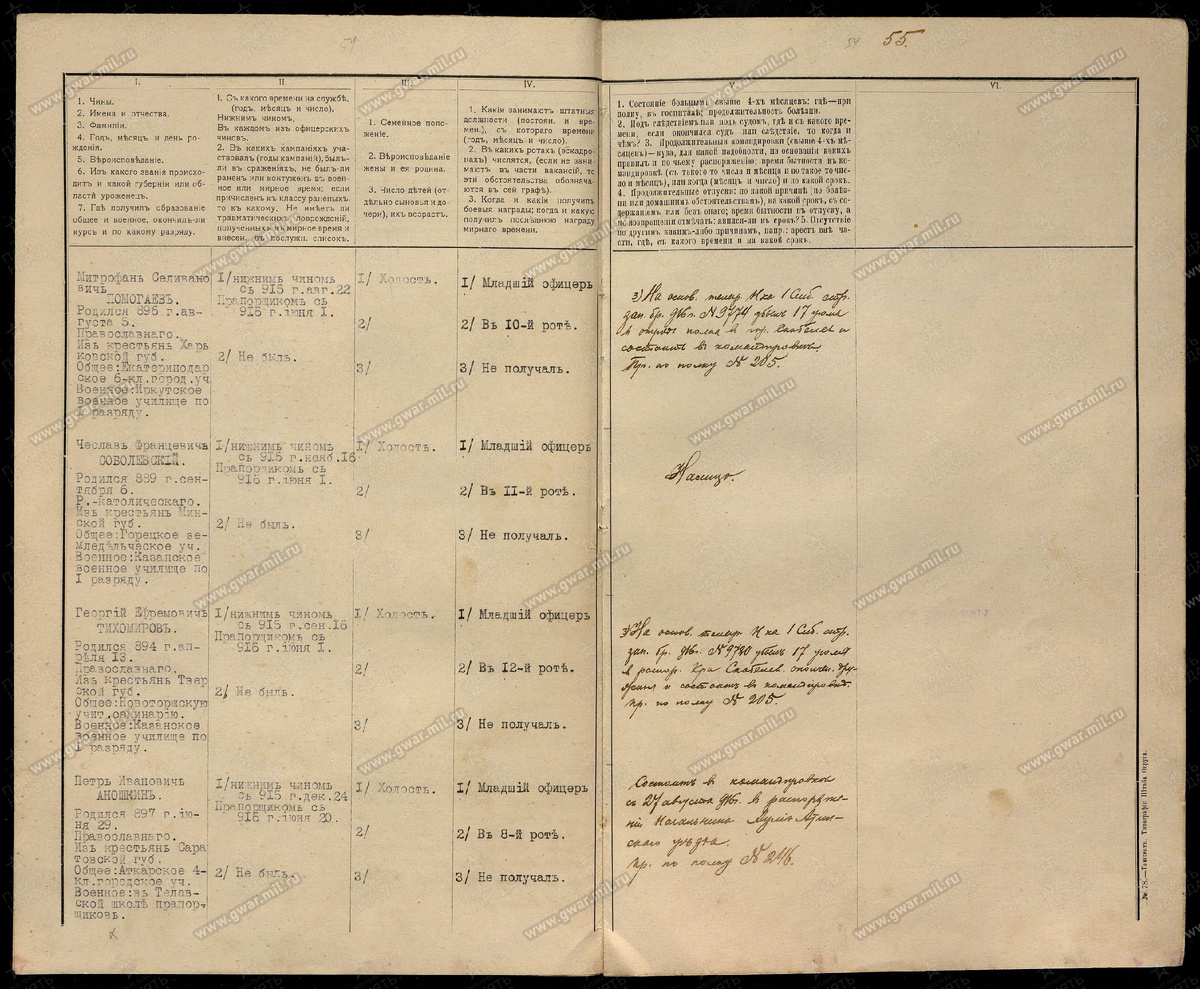 54
54
55.
I.
1. Чины.
2. Имена и отчества.
3. Фамиліи.
4. Годъ, мѣсяцъ и день рожденія.
5. Вѣроисповѣданіе.
6. Изъ какого званія происходитъ и какой губерніи или области уроженецъ.
7. Гдѣ получилъ образованіе общее и военное, окончилъ-ли курсъ и по какому разряду.
II.
1. Съ какого времени на службѣ, (годъ, мѣсяцъ и число).
Нижнимъ чиномъ.
Въ каждомъ изъ офицерскихъ чиновъ.
2. Въ какихъ кампаніяхъ участвовалъ (годы кампаній), былъ-ли въ сраженіяхъ, не былъ-ли раненъ или контуженъ въ военное или мирное время; если причисленъ къ классу раненыхъ то къ какому. Не имѣетъ ли травматическихъ поврежденій, полученныхъ въ мирное время и внесен. въ послужн. списокъ.
III.
1. Семейное положеніе.
2. Вѣроисповѣданіе жены и ея родина.
3. Число дѣтей (отдѣльно сыновья и дочери), ихъ возрастъ.
IV.
1. Какія занимаютъ штатныя должности (постоян. и времен.), съ котораго времени (годъ, мѣсяцъ и число).
2. Въ какихъ ротахъ (эскадронахъ) числятся, (если не занимаютъ въ части вакансій, то эти обстоятельства обозначаются въ сей графѣ).
3. Когда и какія получилъ боевыя награды; когда и какую получилъ послѣднюю награду мирнаго времени.
V.
1. Состояніе больнымъ свыше 4-хъ мѣсяцевъ: гдѣ—при полку, въ госпиталѣ; продолжительность болѣзни.
2. Подъ слѣдствіемъ или подъ судомъ, гдѣ и съ какого времени, если окончился судъ или слѣдствіе, то когда и чѣмъ? 3. Продолжительныя командировки (свыше 4-хъ мѣсяцевъ)—куда, для какой надобности, на основаніи какихъ правилъ и по чьему распоряженію; время бытности въ командировкѣ (съ такого то числа и мѣсяца и по такое то число и мѣсяцъ), или когда (мѣсяцъ и число) и по какой срокъ.
4. Продолжительные отпуска: по какой причинѣ (по болѣзни или домашнимъ обстоятельствамъ), на какой срокъ, съ содержаніемъ или безъ онаго; время бытности въ отпуску, а по возвращеніи отмѣчать: явился-ли въ срокъ? 5. Отсутствіе по другимъ какимъ-либо причинамъ, напр.: арестъ внѣ части, гдѣ, съ какого времени и на какой срокъ.
VI.
Митрофанъ Селивано
вичъ
ПОМОГАЕВЪ.
Родился 896 г.ав-
густа 5.
Православнаго.
Изъ крестьянъ Харь
ковской губ.
Общее:Екатеринодар
ское 6-кл.город.уч
Военное:Иркутское
военное училище по
I разряду.
I/нижнимъ чиномъ
съ 915 г.авг.22
Прапорщикомъ съ
915 г.іюня I.
2/ Не былъ.
I/ Холостъ.
2/
3/
I/ Младшій офицеръ
2/ Въ 10-й ротѣ
3/ Не получалъ.
3) На основ. телегр. Н-ка 1 Сиб. стр.
зап. бр. 916 г. № 9774 убылъ 17 іюля
полка в гор. Скобелев и
состоитъ в командировкѣ.
Пр. по полку № 205.
Чеславъ Францевичъ
СОБОЛЕВСКІЙ.
Родился 889 г.сен-
тября 6.
Р.-католическаго.
Изъ крестьянъ Мин-
ской губ.
Общее:Горецкое зе-
мледѣльческое уч.
Военное:Казанское
военное училище по
I разряду.
I/нижнимъ чиномъ
съ 915 г.нояб.16
Прапорщикомъ съ
916 г.іюня I.
2/ Не былъ.
I/ Холостъ.
2/
3/
I/ Младшій офицеръ
2/ Въ II-й ротѣ.
3/ Не получалъ.
Налицо.
Георгій Ефремовичъ
ТИХОМИРОВЪ.
Родился 894 г.ап-
рѣля 13.
Православнаго.
Изъ крестьянъ Твер
ской губ.
Общее:Новоторжскую
учит.семинарію.
Военное:Казанское
военное училище по
I разряду.
I/нижнимъ чиномъ
съ 915 г.сен.16
Прапорщикомъ съ
916 г.іюня I.
2/ Не былъ.
I/ Холостъ.
2/
3/
I/ Младшій офицеръ
2/ Въ 12-й ротѣ.
3/ Не получалъ.
3) На основ. телегр. Н-ка 1 Сиб. стр.
зап. бр. 916 г. № 9780 убылъ 17 іюля
в распор. Скобелев. ополчен. дру-
жины и состоитъ в командировкѣ.
Пр. по полку № 205.
Петръ Ивановичъ
АНОШКИНЪ.
Родился 897 г.ію-
ня 29.
Православнаго.
Изъ крестьянъ Сара
товской губ.
Общее:Аткарское 4-
кл.городское уч.
Военное:въ Телав-
ской школѣ прапор-
щиковъ.
I/нижнимъ чиномъ
съ 915 г.дек.24
Прапорщикомъ съ
916 г.іюня 20.
2/ Не былъ.
I/ Холостъ.
2/
3/
I/ Младшій офицеръ
2/ Въ 8-й ротѣ.
3/ Не получалъ.
Состоитъ в командировкѣ
съ 27 августа 916 г. в распоряже-
ніи Начальника Аулiе-Атин-
скаго уѣзда.
Пр. по полку № 246.
№ 78.—Ташкентъ. Типографія Штаба Округа.
www.gwar.mil.ru